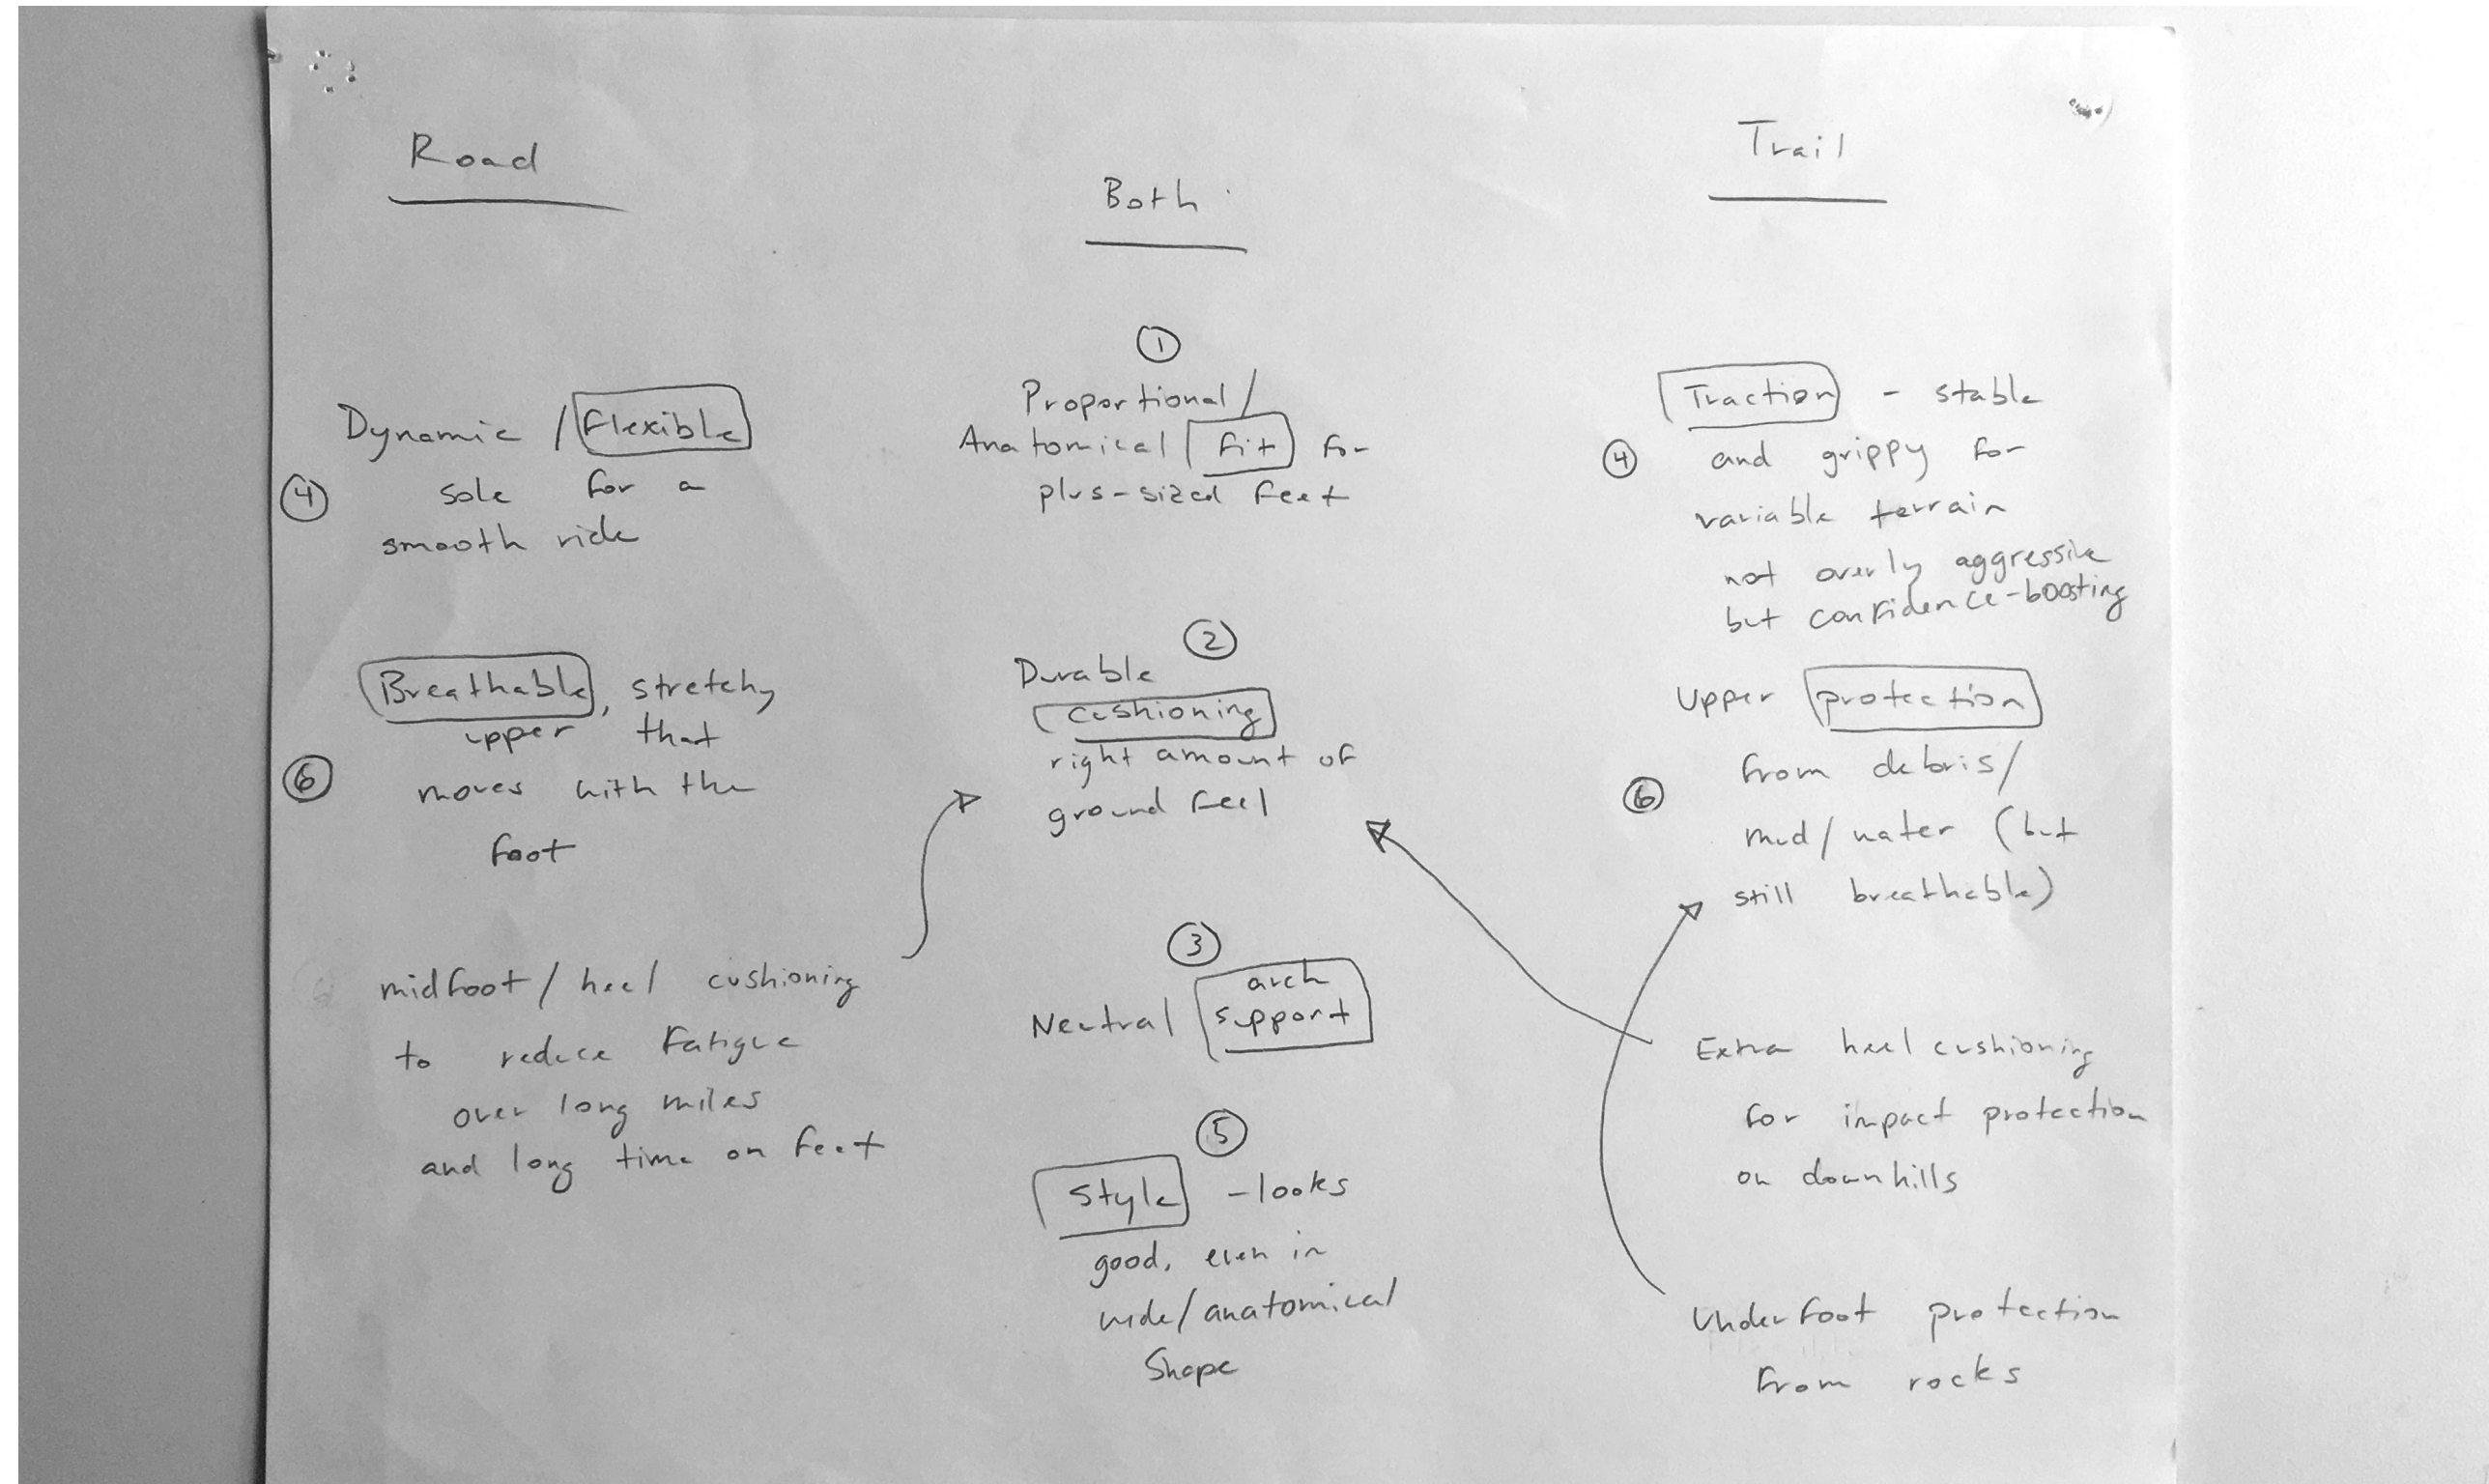 Road
Dynamic / Flexible
④
sole for a
smooth ride
Breathable, stretchy
upper that
⑥
moves with the
foot
midfoot / heel cushioning
to reduce fatigue
over long miles
and long time on feet
Both
①
Proportional /
Anatomical fit for
plus-sized feet
②
Durable
cushioning
right amount of
ground feel
③
arch
Neutral support
⑤
Style - looks
good, even in
wide/anatomical
Shape
Trail
Traction - stable
④
and grippy for
variable terrain
not overly aggressive
but confidence-boosting
Upper protection
from debris/
⑥
mud/water (but
still breathable)
Extra heel cushioning
for impact protection
on downhills
Underfoot protection
from rocks